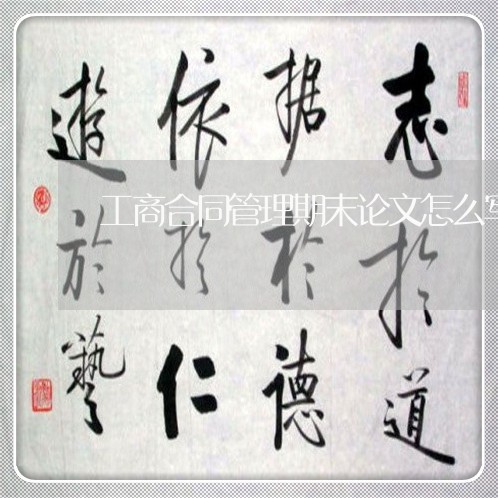 志於道
据於德
依於仁
遊於藝
工商合同管理期末论文怎么写